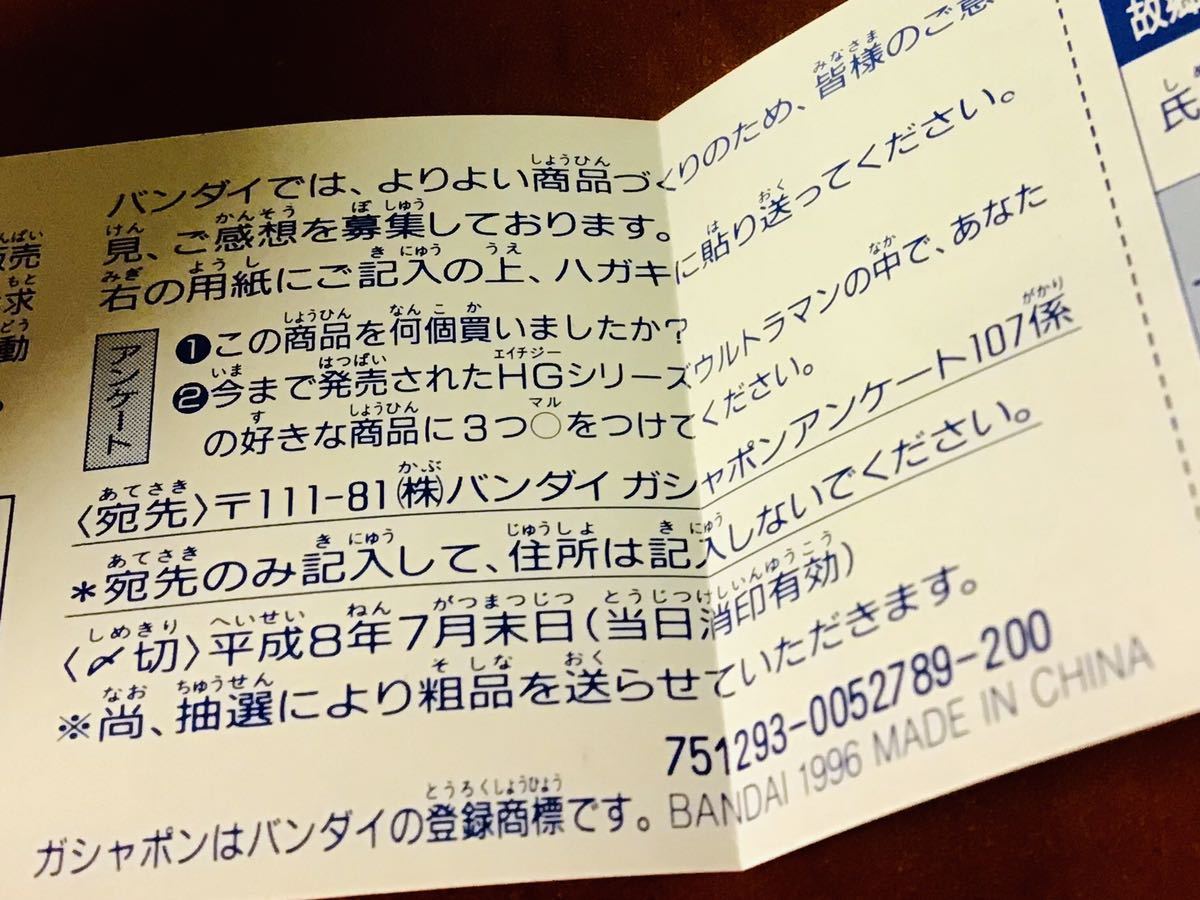 バンダイでは、よりよい商品づくりのため、皆様のご意
見、ご感想を募集しております。
右の用紙にご記入の上、ハガキに貼り送ってください。
アンケート
❶この商品を何個買いましたか？
❷今まで発売されたHGシリーズウルトラマンの中で、あなた
の好きな商品に3つ○をつけてください。
〈宛先〉〒111-81㈱バンダイ ガシャポンアンケート107係
＊宛先のみ記入して、住所は記入しないでください。
〈〆切〉平成8年7月末日(当日消印有効)
※尚、抽選により粗品を送らせていただきます。
751293-0052789-200
ガシャポンはバンダイの登録商標です。BANDAI 1996 MADE IN CHINA
販売
求
動
故郷
氏